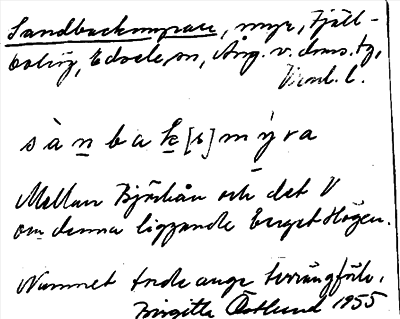 Sandbackmyran, myr, Fjäll-
bolög, Edsele sn, Ång. v. dms. tg,
Vvnl. l.
sànbak[s]mýra
Mellan Björkån och det V
om denna liggande berget Högen.
Namnet torde ange terrängförh.
Birgitta Östlund 1955